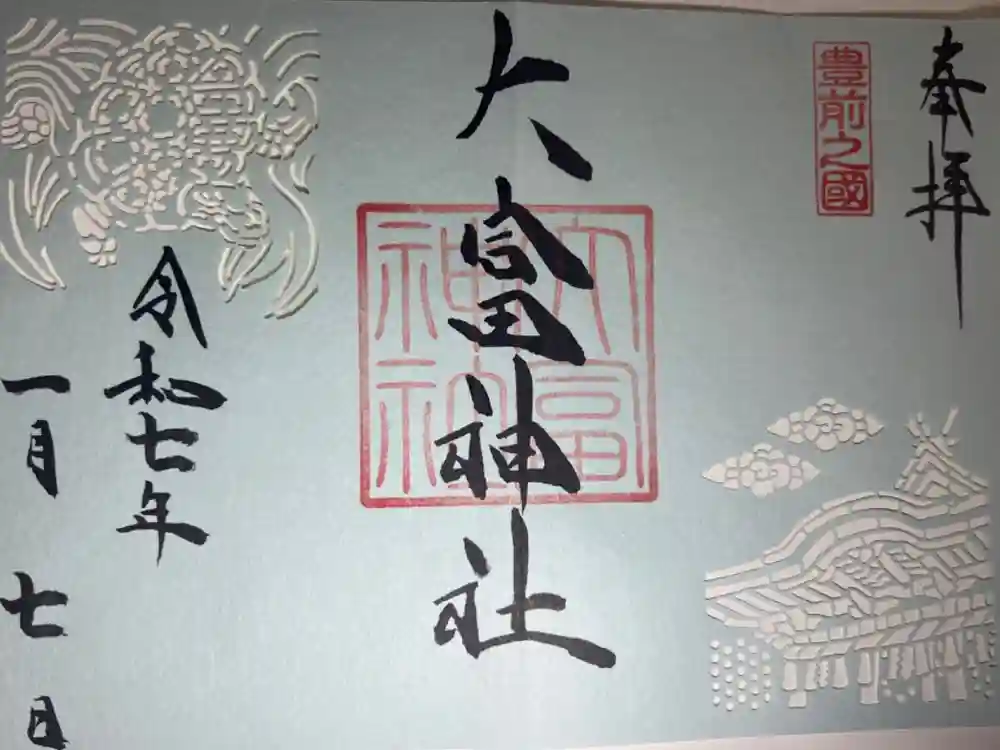 奉拝
豊前之國
大富神社
大富神社
令和七年
一月七日